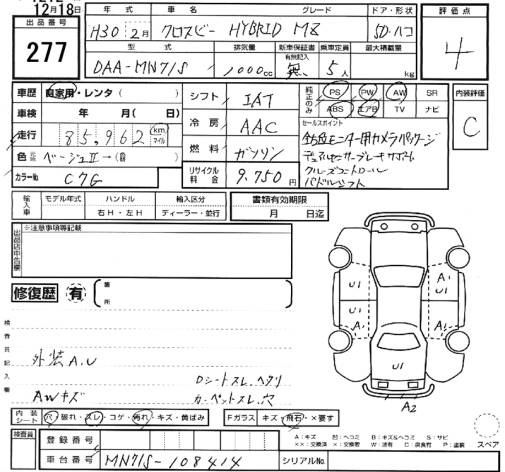 12月18日
出品番号
277
年式 車名 グレード ドア・形状
H30 2月 クロスビー HYBRID MZ 5D・ハコ
型式 排気量 新車保証書 乗車定員 最大積載量
有無記入
DAA-MN71S 1000cc 無 5人 kg
評価点
4
車歴 自家用・レンタ( )
車検 年 月( )
走行 85,962 km マイル
色 元色 ベージュII→(自
カラーNo C7G
シフト IAT
冷房 AAC
燃料 ガソリン
リサイクル料金 9.750円
純正のみ PS PW AW SR
ABS エアB TV ナビ
セールスポイント
全方位モニター用カメラパッケージ
デュアルセンサーブレーキサポート
クルーズコントロール
パドルシフト
内装評価
C
輸入車 モデル年式 ハンドル 輸入区分
年 右H・左H ディーラー・並行
書類有効期限
月 日迄
出品店申告欄
※注意事項等記載
修復歴 有
箇所
検査員記入欄
外装A.U
AWキズ
Dシートスレ.ヘタリ
カーペットスレ.穴
U1 A1 U1 U1 A1 A1 U1
A2
内装シート 穴・破れ・スレ・コゲ・汚れ・キズ・黄ばみ Fガラス キズ・飛石・×要す
スペア
A:キズ 凹:ヘコミ B:キズ&ヘコミ S:サビ
××:交換済 ×:交換要 W:波有 C:腐食有 P:塗装
検査員
登録番号
車台番号 MN71S-108414 シリアルNo.